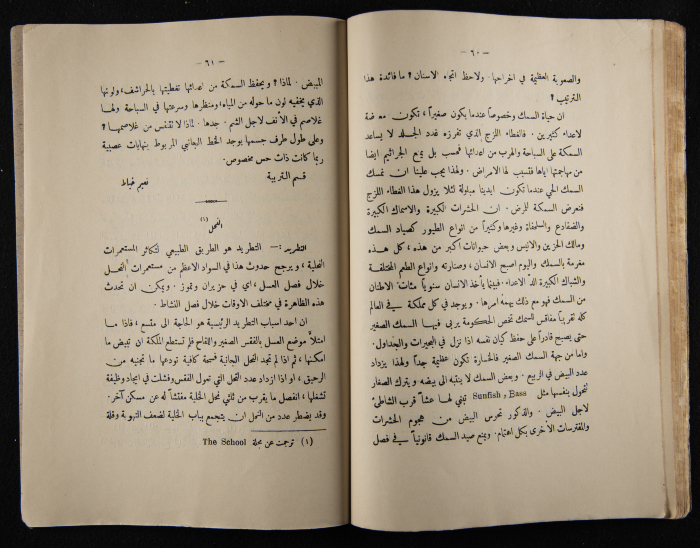 — ٦٠ —
والصعوبة العظيمة في اخراجها. ولاحظ اتجاه الاسنان؟ ما فائدة هذا
الترتيب؟
ان حياة السمك وخصوصاً عندما يكون صغيراً، تكون معرضة
لاعداء كثيرين. فالغطاء اللزج الذي تفرزه غدد الجلد لا يساعد
السمكة على السباحة والهرب من اعدائها فحسب بل يمنع الجراثيم ايضا
من مهاجمتها اياها فتسبب لها الامراض. ولهذا يجب علينا ان نمسك
السمك الحي عندما تكون ايدينا مبلولة لئلا يزول هذا الغطاء اللزج
فنعرض السمكة للمرض. ان الحشرات الكبيرة والاسماك الكبيرة
والضفادع والسلحفاة وغيرها وكثيراً من انواع الطيور كصياد السمك
ومالك الحزين والانيس وبعض حيوانات اكبر من هذه، كل هذه
مغرمة بالسمك واليوم اصبح الانسان، وصنارته وانواع الطعم المختلفة
والشباك الكبيرة الدّ الاعداء. فبينما يأخذ الانسان سنوياً مئات الاطنان
من السمك فهو مع ذلك يهمه امرها. ويوجد في كل مملكة في العالم
كله تقريباً مفاقس للسمك تخص الحكومة يربى فيها السمك الصغير
حتى يصبح قادراً على حفظ كيان نفسه اذا نزل في البحيرات والجداول.
واما من جهة السمك الصغير فالخسارة تكون عظيمة جداً ولهذا يزداد
عدد البيض في الربيع. وبعض السمك لا ينتبه الى بيضه ويترك الصغار
تتحول بنفسها مثل Sunfish و Bass تبني لها عشاً قرب الشاطئ
لاجل البيض. والذكور تحرس البيض من هجوم الحشرات
والمفترسات الأخرى بكل اهتمام. ويمنع صيد السمك قانونياً في فصل
— ٦١ —
المبيض. لماذا؟ ويحفظ السمكة من اعدائها تغطيتها بالحراشف، ولونها
الذي يخفيه لون ما حوله من المياه، ومنظرها وسرعتها في السباحة ولها
غلاصم في الأنف لاجل الشم. جدها. لماذا لا تتنفس من غلاصمها؟
وعلى طول طرف جسمها يوجد الخط الجانبي المربوط بنهايات عصبية
ربما كانت ذات حس مخصوص.
قسم التربية نعيم قباط
النحل (١)
التطريد :— التطريد هو الطريق الطبيعي لتكاثر المستعمرات
النحلية، ويرجع حدوث هذا في السواد الاعظم من مستعمرات النحل
خلال فصل العسل، اي في حزيران وتموز. ويمكن ان تحدث
هذه الظاهرة في مختلف الاوقات خلال فصل النشاط.
ان احد اسباب التطريد الرئيسية هو الحاجة الى متسع، فاذا ما
امتلأ موضع العسل بالفقس الصغير واللقاح فلم تستطع الملكة ان تبيض ما
امكنها، ثم اذا لم تجد النحل الجانية فسحة كافية تودعها ما تجنيه من
الرحيق، او اذا ازداد عدد النحل التي تعول الفقس وفشلت في ايجاد وظيفة
تشغلها، انفصل ما يقرب من ثلثي نحل الخلية مفتشاً له عن مسكن آخر.
وقد يضطر عدد من النحل ان يتجمع بباب الخلية لضعف التهوية وقلة
(١) ترجمت عن مجلة The School